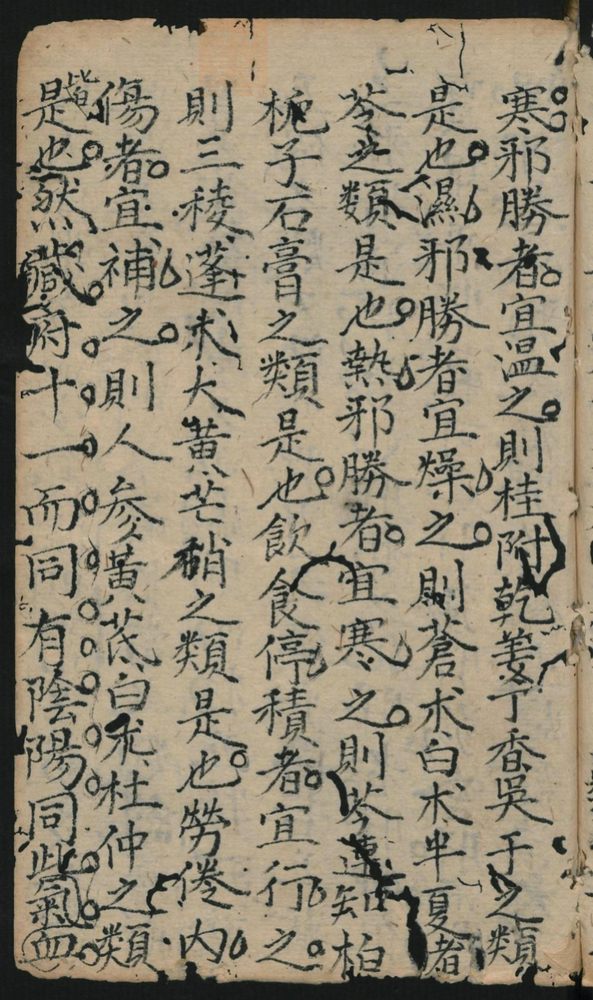 寒邪勝者宜温之則桂附乾姜丁香吳于之類
是也濕邪勝者宜燥之則蒼朮白朮半夏者
苓之類是也熱邪勝者宜寒之則芩連知柏
梔子石膏之類是也飲食停積者宜行之
則三稜蓬朮大黃芒硝之類是也勞倦內
傷者宜補之則人參黃芪白朮杜仲之類
皆是也然臟腑十一而同有陰陽同此氣血